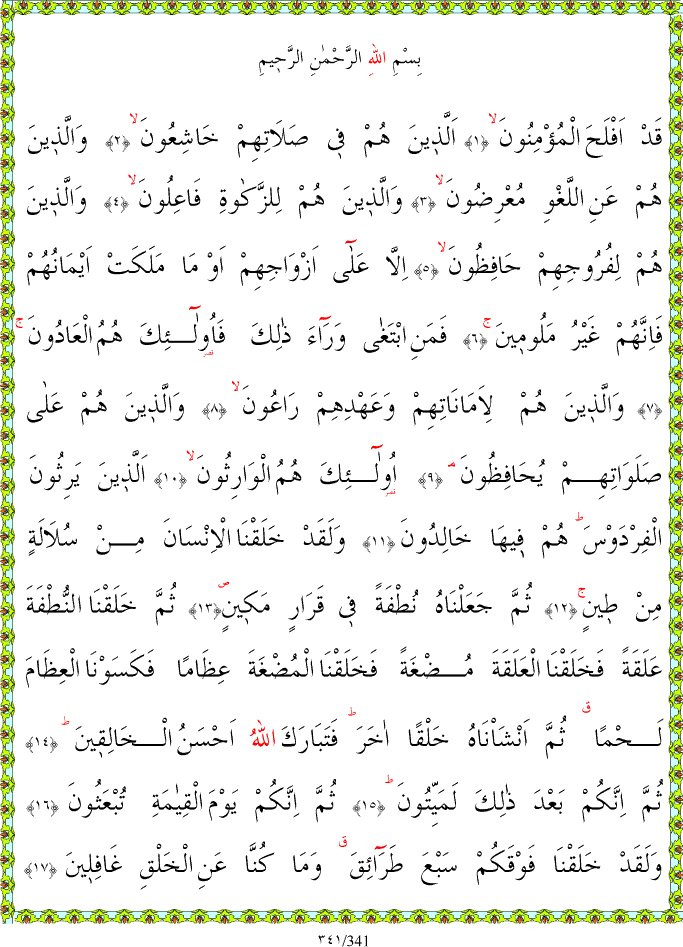 بِسْمِ اللهِ الرَّحْمٰنِ الرَّح۪يمِ
قَدْ اَفْلَحَ الْمُؤْمِنُونَۙ ﴿١﴾ اَلَّذ۪ينَ هُمْ ف۪ي صَلَاتِهِمْ خَاشِعُونَۙ ﴿٢﴾ وَالَّذ۪ينَ
هُمْ عَنِ اللَّغْوِ مُعْرِضُونَۙ ﴿٣﴾ وَالَّذ۪ينَ هُمْ لِلزَّكٰوةِ فَاعِلُونَۙ ﴿٤﴾ وَالَّذ۪ينَ
هُمْ لِفُرُوجِهِمْ حَافِظُونَۙ ﴿٥﴾ اِلَّا عَلٰٓى اَزْوَاجِهِمْ اَوْ مَا مَلَكَتْ اَيْمَانُهُمْ
فَاِنَّهُمْ غَيْرُ مَلُوم۪ينَۚ ﴿٦﴾ فَمَنِ ابْتَغٰى وَرَٓاءَ ذٰلِكَ فَاُو۬لٰٓئِكَ هُمُ الْعَادُونَۚ
﴿٧﴾ وَالَّذ۪ينَ هُمْ لِاَمَانَاتِهِمْ وَعَهْدِهِمْ رَاعُونَۙ ﴿٨﴾ وَالَّذ۪ينَ هُمْ عَلٰى
صَلَوَاتِهِمْ يُحَافِظُونَۢ ﴿٩﴾ اُو۬لٰٓئِكَ هُمُ الْوَارِثُونَۙ ﴿١٠﴾ اَلَّذ۪ينَ يَرِثُونَ
الْفِرْدَوْسَۜ هُمْ ف۪يهَا خَالِدُونَ ﴿١١﴾ وَلَقَدْ خَلَقْنَا الْاِنْسَانَ مِنْ سُلَالَةٍ
مِنْ ط۪ينٍۚ ﴿١٢﴾ ثُمَّ جَعَلْنَاهُ نُطْفَةً ف۪ي قَرَارٍ مَك۪ينٍۖ ﴿١٣﴾ ثُمَّ خَلَقْنَا النُّطْفَةَ
عَلَقَةً فَخَلَقْنَا الْعَلَقَةَ مُضْغَةً فَخَلَقْنَا الْمُضْغَةَ عِظَامًا فَكَسَوْنَا الْعِظَامَ
لَحْمًاۗ ثُمَّ اَنْشَاْنَاهُ خَلْقًا اٰخَرَۜ فَتَبَارَكَ اللهُ اَحْسَنُ الْخَالِق۪ينَۜ ﴿١٤﴾
ثُمَّ اِنَّكُمْ بَعْدَ ذٰلِكَ لَمَيِّتُونَۜ ﴿١٥﴾ ثُمَّ اِنَّكُمْ يَوْمَ الْقِيٰمَةِ تُبْعَثُونَ ﴿١٦﴾
وَلَقَدْ خَلَقْنَا فَوْقَكُمْ سَبْعَ طَرَٓائِقَۗ وَمَا كُنَّا عَنِ الْخَلْقِ غَافِل۪ينَ ﴿١٧﴾
٣٤١/341